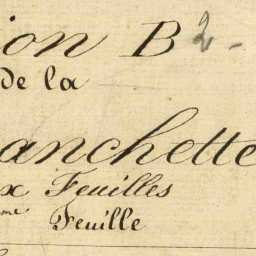 ion B 2.
de la
anchette
x Feuilles
me Feuille